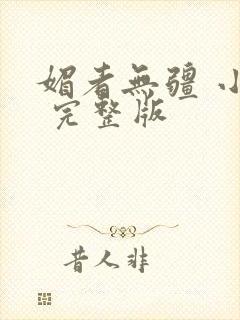 媚者無疆 小
完整版
昔人非